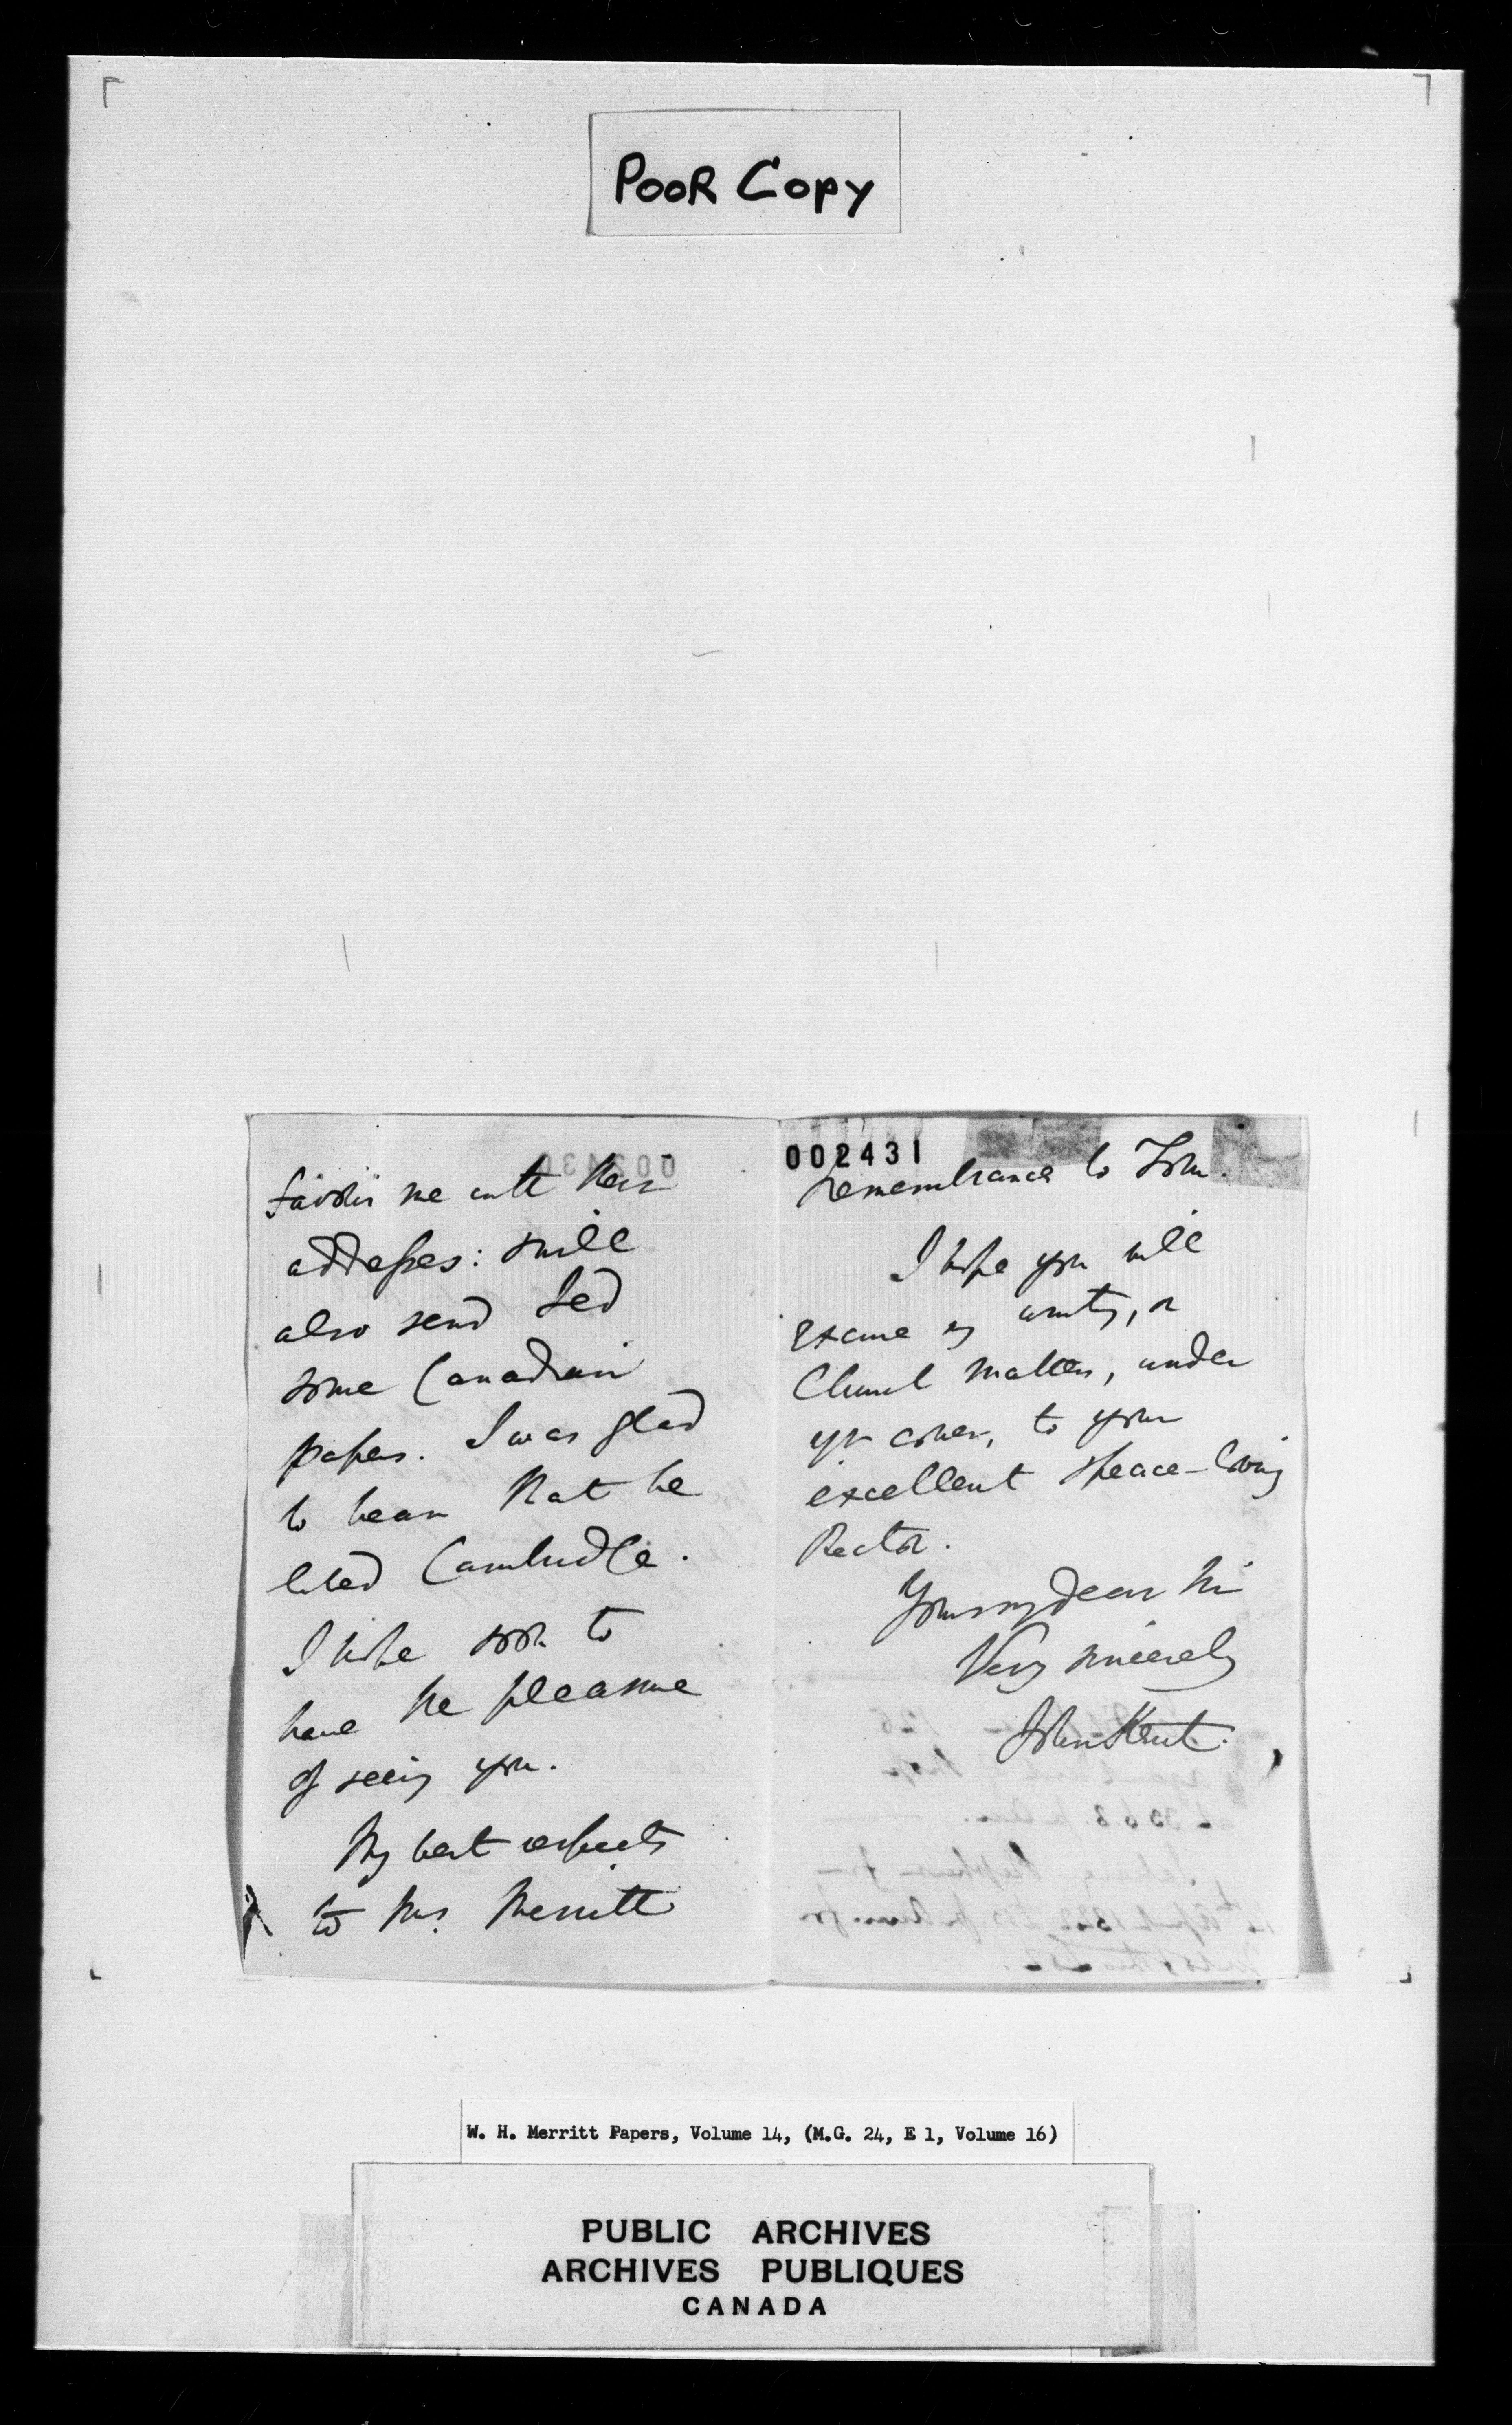 POOR COPY
favour me with their
addresses: & will
also send Jed
some Canadian
papers. I was glad
to hear that he
liked Cambridge.
I hope soon to
have the pleasure
of seeing you.
My best respects
to Mrs. Merritt
002431
remembrance to Tom.
I hope you will
excuse my writing, on
Church matters, under
yr cover, to your
excellent & peace-loving
Rector.
Yours my dear Sir
Very sincerely
John Kent.
W. H. Merritt Papers, Volume 14, (M.G. 24, E 1, Volume 16)
PUBLIC ARCHIVES
ARCHIVES PUBLIQUES
CANADA